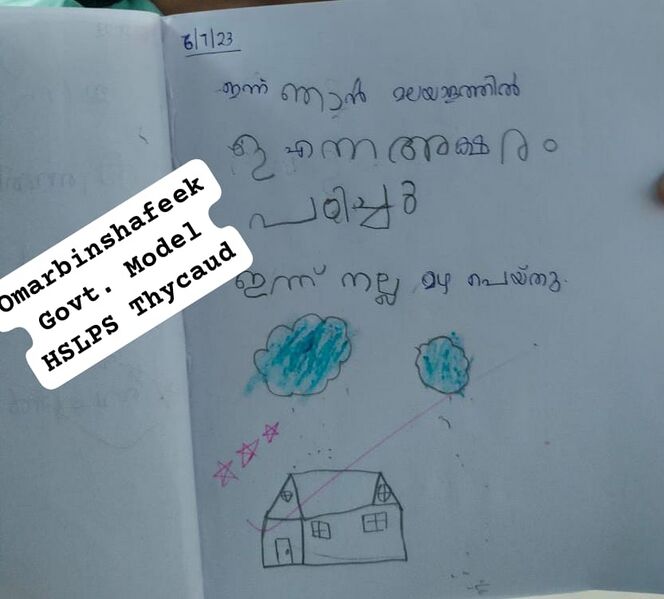 6/7/23
ഇന്ന് ഞാൻ മലയാളത്തിൽ
ഇ എന്ന അക്ഷരം
പഠിച്ചു
ഇന്ന് നല്ല മഴ പെയ്തു.
Omarbinshafeek
Govt. Model
HSLPS Thycaud